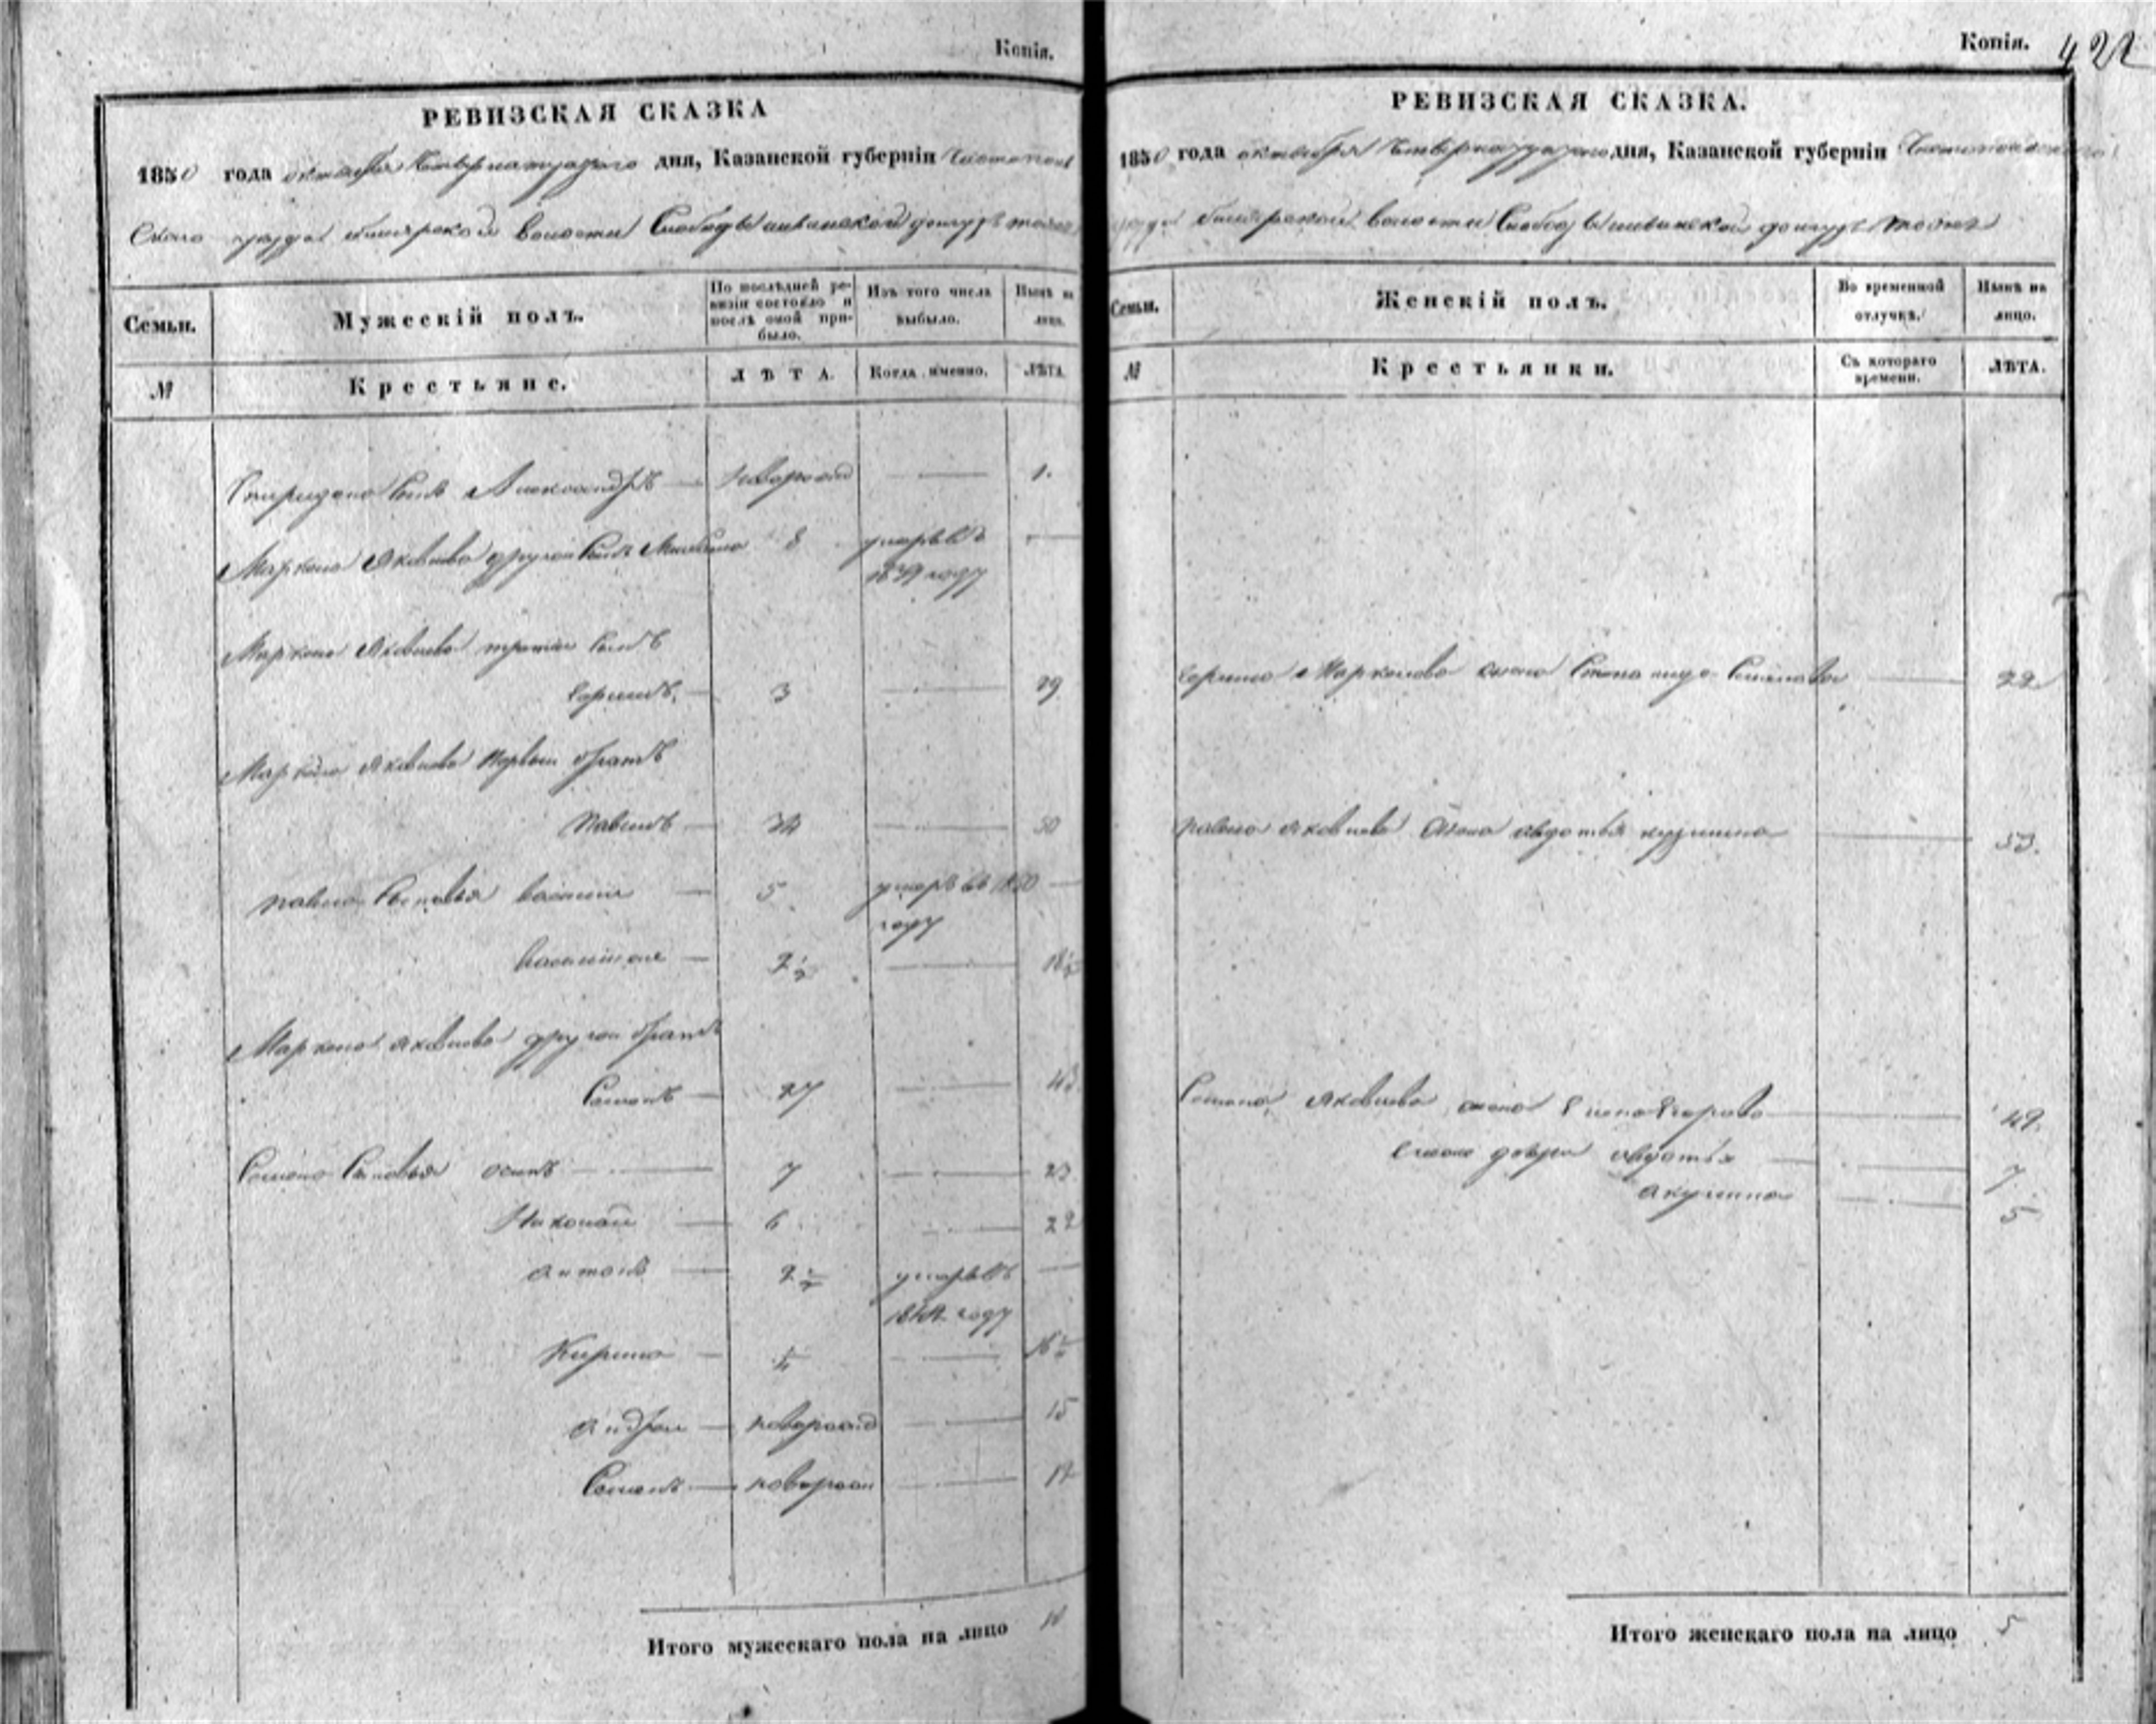 Копія.
РЕВИЗСКАЯ СКАЗКА
1850 года октября Четырнатцатаго дня, Казанской губерніи Чистополь
скаго уезда волости Слободы
Семьи. Мужескій полъ. По послѣдней ревизіи состояло и послѣ оной прибыло. Изъ того числа выбыло. Нынѣ на лицо.
№ Крестьяне. ЛѢТА. Когда именно. ЛѢТА
Спиридона Сынъ Александръ — новорожд — 1.
Маркела Яковлева другой Сынъ 8 умеръ въ —
году
Маркела Яковлева третий Сынъ
3 — 19
Маркела Яковлева Первый братъ
Павелъ — 34 — 50
Павла Сыновья Василий — 5 умеръ въ 1850 —
году
2½ — 18½
Маркела Яковлева другой братъ
Семенъ — 27 — 43
Семена Сыновья Осипъ — 7 — 23
Николай — 6 — 22
Антонъ — 2½ умеръ въ —
1844 году
Кирила — ½ — 16½
Андрей — новорожд — 15
Семенъ — новорожд — 12
Итого мужескаго пола на лицо 10
Копія. 422
РЕВИЗСКАЯ СКАЗКА.
1850 года октября Четырнадцатаго дня, Казанской губерніи Чистопольскаго
уезда волости Слободы
Семьи. Женскій полъ. Во временной отлучкѣ. Нынѣ на лицо.
№ Крестьянки. Съ котораго времени. ЛѢТА.
Маркелова жена Степанида Семенова — 22
Павла Яковлева жена Авдотья — 53.
Семена Яковлева жена Елена Егорова — 49.
Семена дочери Авдотья — 7
Акулина — 5
Итого женскаго пола на лицо 5